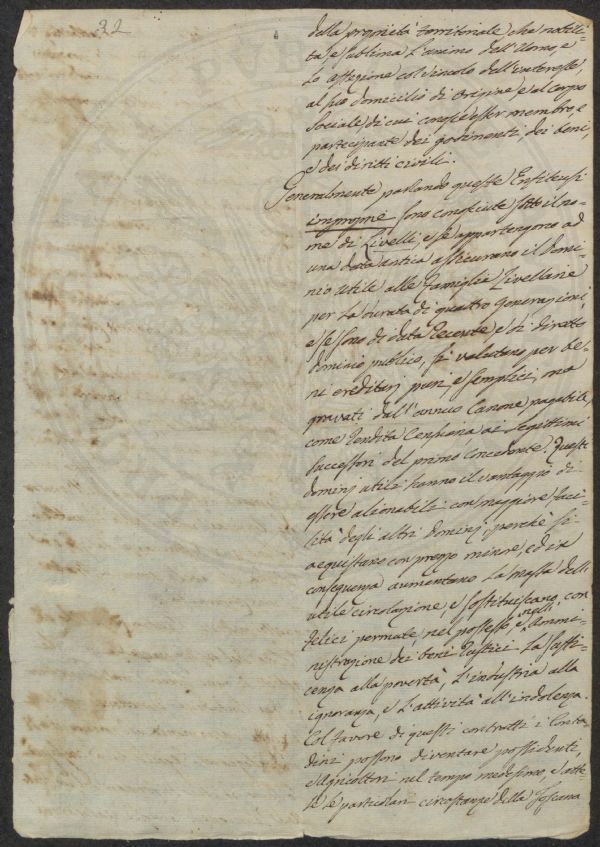 32
dalla proprietà territoriale che nobili-
ta, e sublima l'animo dell'Uomo, e
lo affezione col vincolo dell'interesse,
al suo domicilio di origine, e al corpo
sociale, di cui conosce esser membro, e
partecipante dei godimenti, dei beni,
e dei diritti civili.
Generalmente parlando queste Enfiteusi
improprie sono conosciute sotto il no-
me di Livelli, e se appartengono ad
una data antica assicurano il Domi-
nio utile alle famiglie Livellarie
per la durata di quattro generazioni,
e se sono di data recente e di diretto
dominio publico, si valutano per be-
ni ereditarj puri, e semplici, ma
gravati dall'annuo Canone pagabile,
come rendita Censuaria ai legittimi
successori del primo Concedente. Questi
dominj utili hanno il vantaggio di
essere alienabili con maggiore faci-
lità degli altri dominj, perchè si
acquistano con prezzo minore, ed in
conseguenza aumentano la massa dell'
utile circolazione, e sostituiscono con
felici permute, nel possesso, e nell' Ammi-
nistrazione dei beni Rustici la suffi-
cenza alla povertà, l'industria alla
ignoranza, e l'attività all'indolenza.
Col favore di questi contratti i Conta-
dini possono diventare possidenti,
e Agricoltori nel tempo medesimo, e atte-
se le particolari circostanze della Toscana